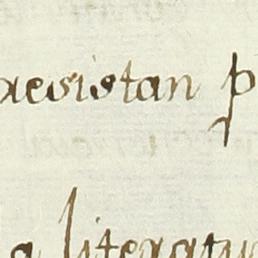 aesistan p
a literatu